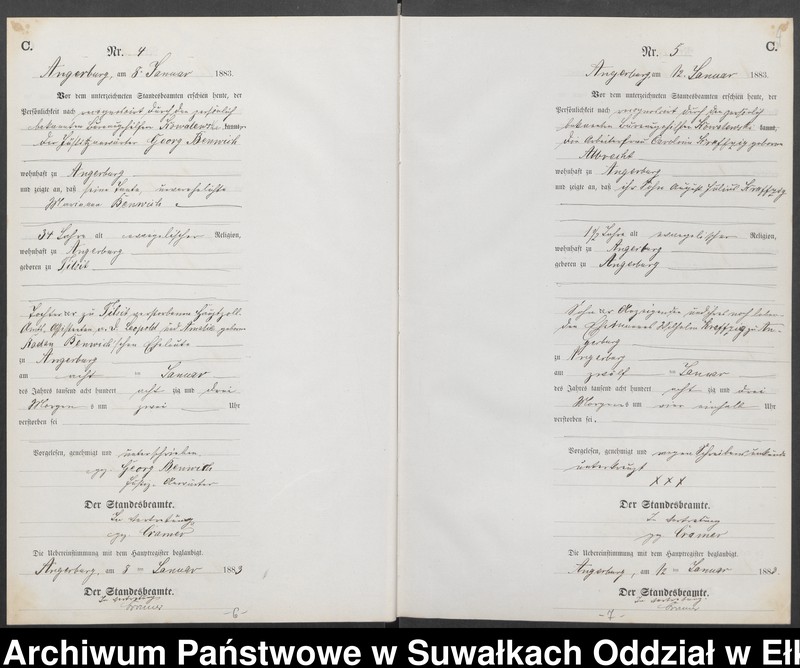 C.
Nr. 4
Angerburg, am 8. Januar 1883.
Vor dem unterzeichneten Standesbeamten erschien heute, der
Persönlichkeit nach recognoscirt durch den persönlich
bekannten Büreaugehilfen Kowalewski kannt,
der Georg Benwich
wohnhaft zu Angerburg
und zeigte an, daß seine Tante, unverehelichte
Marianne Benwich
34 Jahre alt evangelischer Religion,
wohnhaft zu Angerburg
geboren zu Tilsit
Tochter der zu Tilsit verstorbenen Hauptzoll-
Amts-Assistenten a. D. Leopold und Amalie geborne
Benwich'schen Eheleute
zu Angerburg
am acht ten Januar
des Jahres tausend acht hundert acht zig und drei
Morgens um zwei Uhr
verstorben sei
Vorgelesen, genehmigt und unterschrieben
gez. Georg Benwich
Der Standesbeamte.
In Vertretung
gez. Cramer
Die Uebereinstimmung mit dem Hauptregister beglaubigt.
Angerburg, am 8 ten Januar 1883
Der Standesbeamte.
In Vertretung
Cramer
-6-
C.
Nr. 5
Angerburg am 12. Januar 1883.
Vor dem unterzeichneten Standesbeamten erschien heute, der
Persönlichkeit nach recognoscirt durch den persönlich
bekannten Büreaugehilfen Kowalewski kannt,
die Arbeiterfrau Caroline Kroppzig geborne
Albrecht
wohnhaft zu Angerburg
und zeigte an, daß ihr Sohn August Julius Kroppzig
1 1/2 Jahre alt evangelischer Religion,
wohnhaft zu Angerburg
geboren zu Angerburg
Sohn der Anzeigenden und ihres noch leben-
den Ehemannes Wilhelm Kroppzig zu An-
gerburg
zu Angerburg
am zwölf ten Januar
des Jahres tausend acht hundert acht zig und drei
Morgens um vier einhalb Uhr
verstorben sei.
Vorgelesen, genehmigt und wegen Schreibensunkunde
unterkreuzt
XXX
Der Standesbeamte.
In Vertretung
gez. Cramer
Die Uebereinstimmung mit dem Hauptregister beglaubigt.
Angerburg, am 12 ten Januar 1883.
Der Standesbeamte.
In Vertretung
Cramer
-7-
Archiwum Państwowe w Suwałkach Oddział w Eł